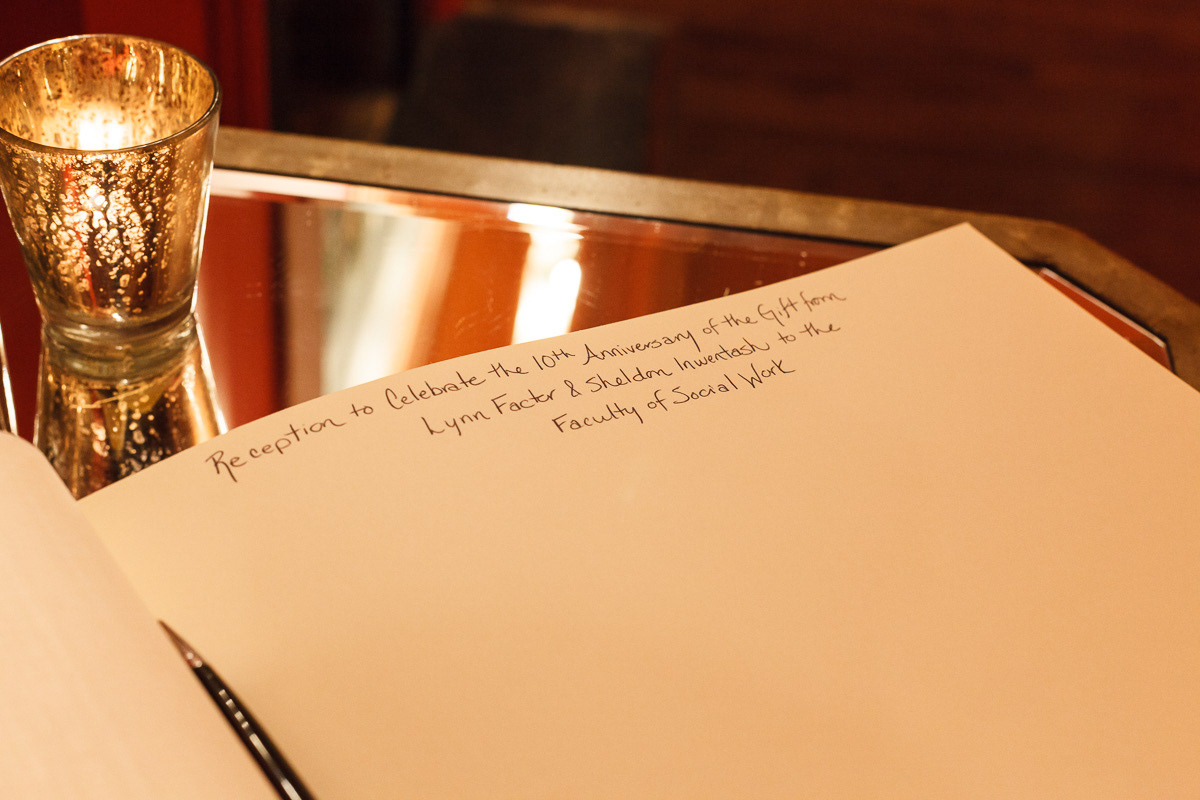 Reception to Celebrate the 10th Anniversary of the Gift from
Lynn Factor & Sheldon Inwentash to the
Faculty of Social Work